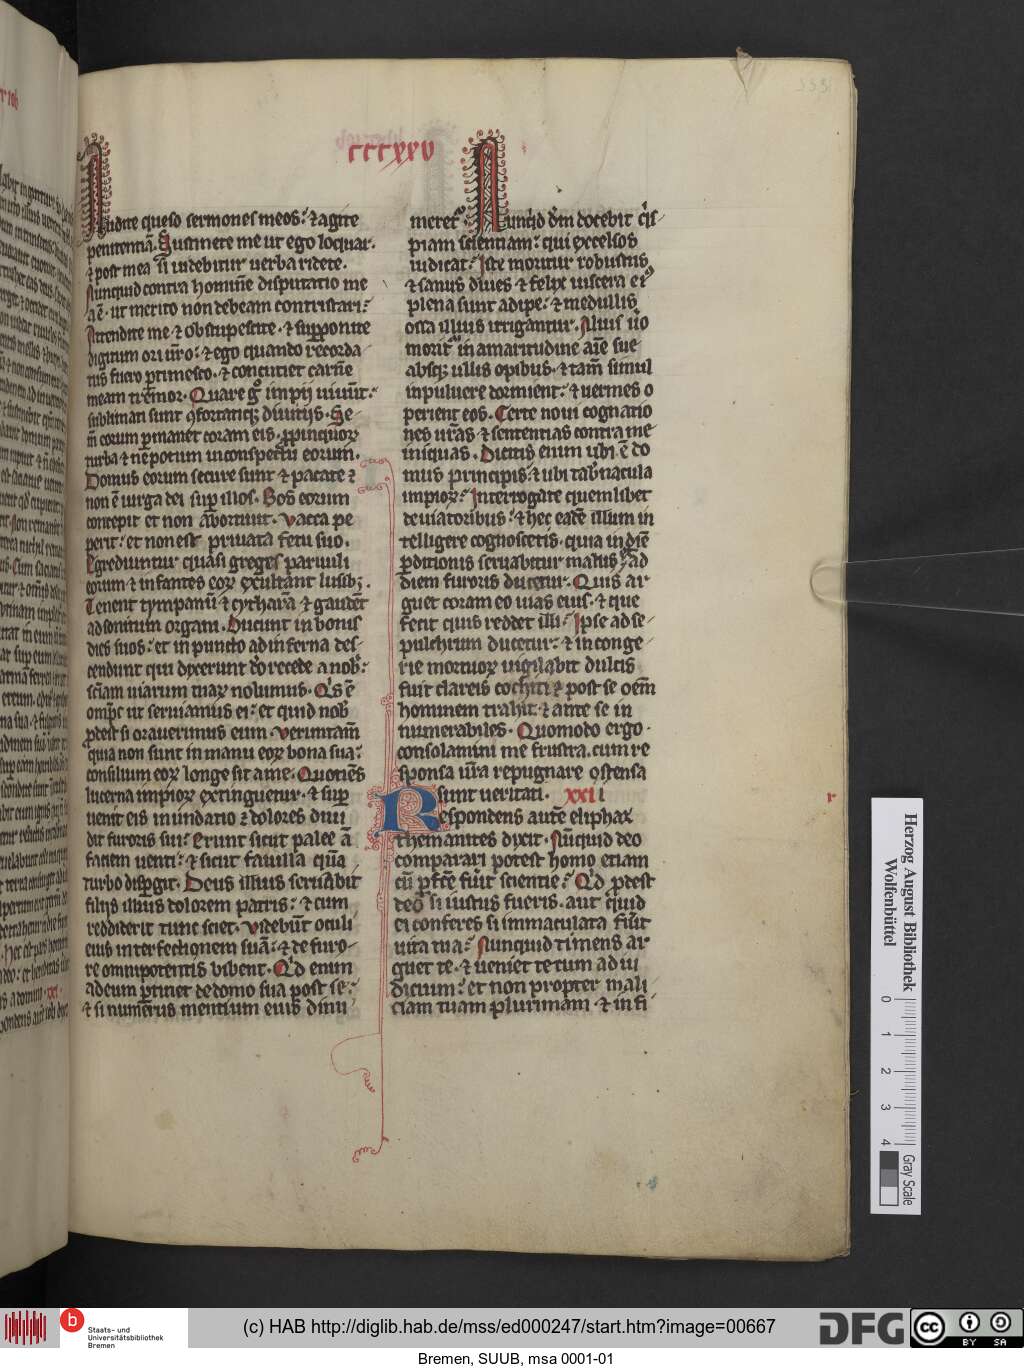 ccccxxv
Audite queso sermones meos: ⁊ agite
penitentiā. Sustinete me ut ego loquar.
⁊ post mea si uidebitur uerba ridete.
Nunquid contra hominē disputatio mea
ē. ut merito non debeam contristari:
Attendite me ⁊ obstupescite. ⁊ supponite
digitum ori ur̄o: ⁊ ego quando recorda
tus fuero ptimesco. ⁊ concutiet carnē
meam tremor. Quare gͦ impii uiuūt:
subleuati sunt 9fortatiqꝫ diuitijs. Se
m̄ eorum pmanet coram eis. ppinquoꝝ
turba ⁊ nepotum in conspectu eorum.
Domus eorum secure sunt ⁊ pacate ⁊
non ē uirga dei sup illos. Bos eorum
concepit et non abortiuit. Vacca pe
perit: et non est priuata fetu suo.
Egrediuntur quasi greges paruuli
eorum ⁊ infantes eoꝝ exultant lusibꝫ.
Tenent tympanū ⁊ cytharā ⁊ gaudēt
ad sonitum organi. Ducunt in bonis
dies suos: et in puncto ad inferna des
cendunt qui dixerunt do recede a nob:
sciam uiarum tuaꝝ nolumus. Qͥs ē
omps ut seruiamus ei: et quid nob
pdest si orauerimus eum. Verumtam̄
quia non sunt in manu eoꝝ bona sua:
consilium eoꝝ longe sit a me. Quotiēs
lucerna impioꝝ extinguetur. ⁊ sup
uenit eis inundatio ⁊ dolores diui
dit furoris sui: Erunt sicut palee ā
faciem uenti: ⁊ sicut fauilla quā
turbo dispgit. Deus illius seruabit
filijs illius dolorem patris: ⁊ cum
reddiderit tunc sciet. Videbūt oculi
eius interfectionem suā: ⁊ de furo
re omnipotentis bibent. Qͥd enim
ad eum ptinet de domo sua post se:
⁊ si numerus mensium eius dimi
dieret. Nunqͥd dm̄ docebit qͥs
piam scientiam: qui excelsos
iudicat: Iste moritur robustus
⁊ sanus diues ⁊ felix uiscera eiꝰ
plena sunt adipe: ⁊ medullis
ossa illius irrigantur. Alius uͦo
moritͬ in amaritudine aīe sue
absqꝫ ullis opibus. ⁊ tam̄ simul
in puluere dormient: ⁊ uermes o
perient eos. Certe noui cognatio
nes uras ⁊ sententias contra me
iniquas. Dicitis enim ubi ē do
mus principis: ⁊ ubi tabnacula
impioꝝ: Interrogate quemlibet
de uiatoribus: ⁊ hec eadē illum in
telligere cognoscetis. quia in diē
pditionis seruabitur malus: ⁊ ad
diem furoris ducetur. Quis ar
guet coram eo uias eius. ⁊ que
fecit quis reddet illi: Ipse ad se
pulchrum ducetur: ⁊ in conge
rie mortuoꝝ uigilabit dulcis
fuit clareis cochiti ⁊ post se oēm
hominem trahit. ⁊ ante se in
numerabiles. Quomodo ergo
consolamini me frustra. cum re
sponsa ura repugnare ostensa
sunt ueritati. xxii
Respondens autē eliphaz
themanites dixit. Nūquid deo
comparari potest homo etiam
cū pfcē fuit scientie: Qͥd pdest
deo si iustus fueris. aut quid
ei conferes si immaculata fuit
uita tua: Nunquid timens ar
guet te. ⁊ ueniet tecum ad iu
dicium: et non propter mali
ciam tuam plurimam ⁊ in fi
Herzog August Bibliothek
Wolfenbüttel
0 1 2 3 4
Gray Scale
b Staats- und
Universitätsbibliothek
Bremen
(c) HAB http://diglib.hab.de/mss/ed000247/start.htm?image=00667
DFG
cc BY SA
Bremen, SUUB, msa 0001-01